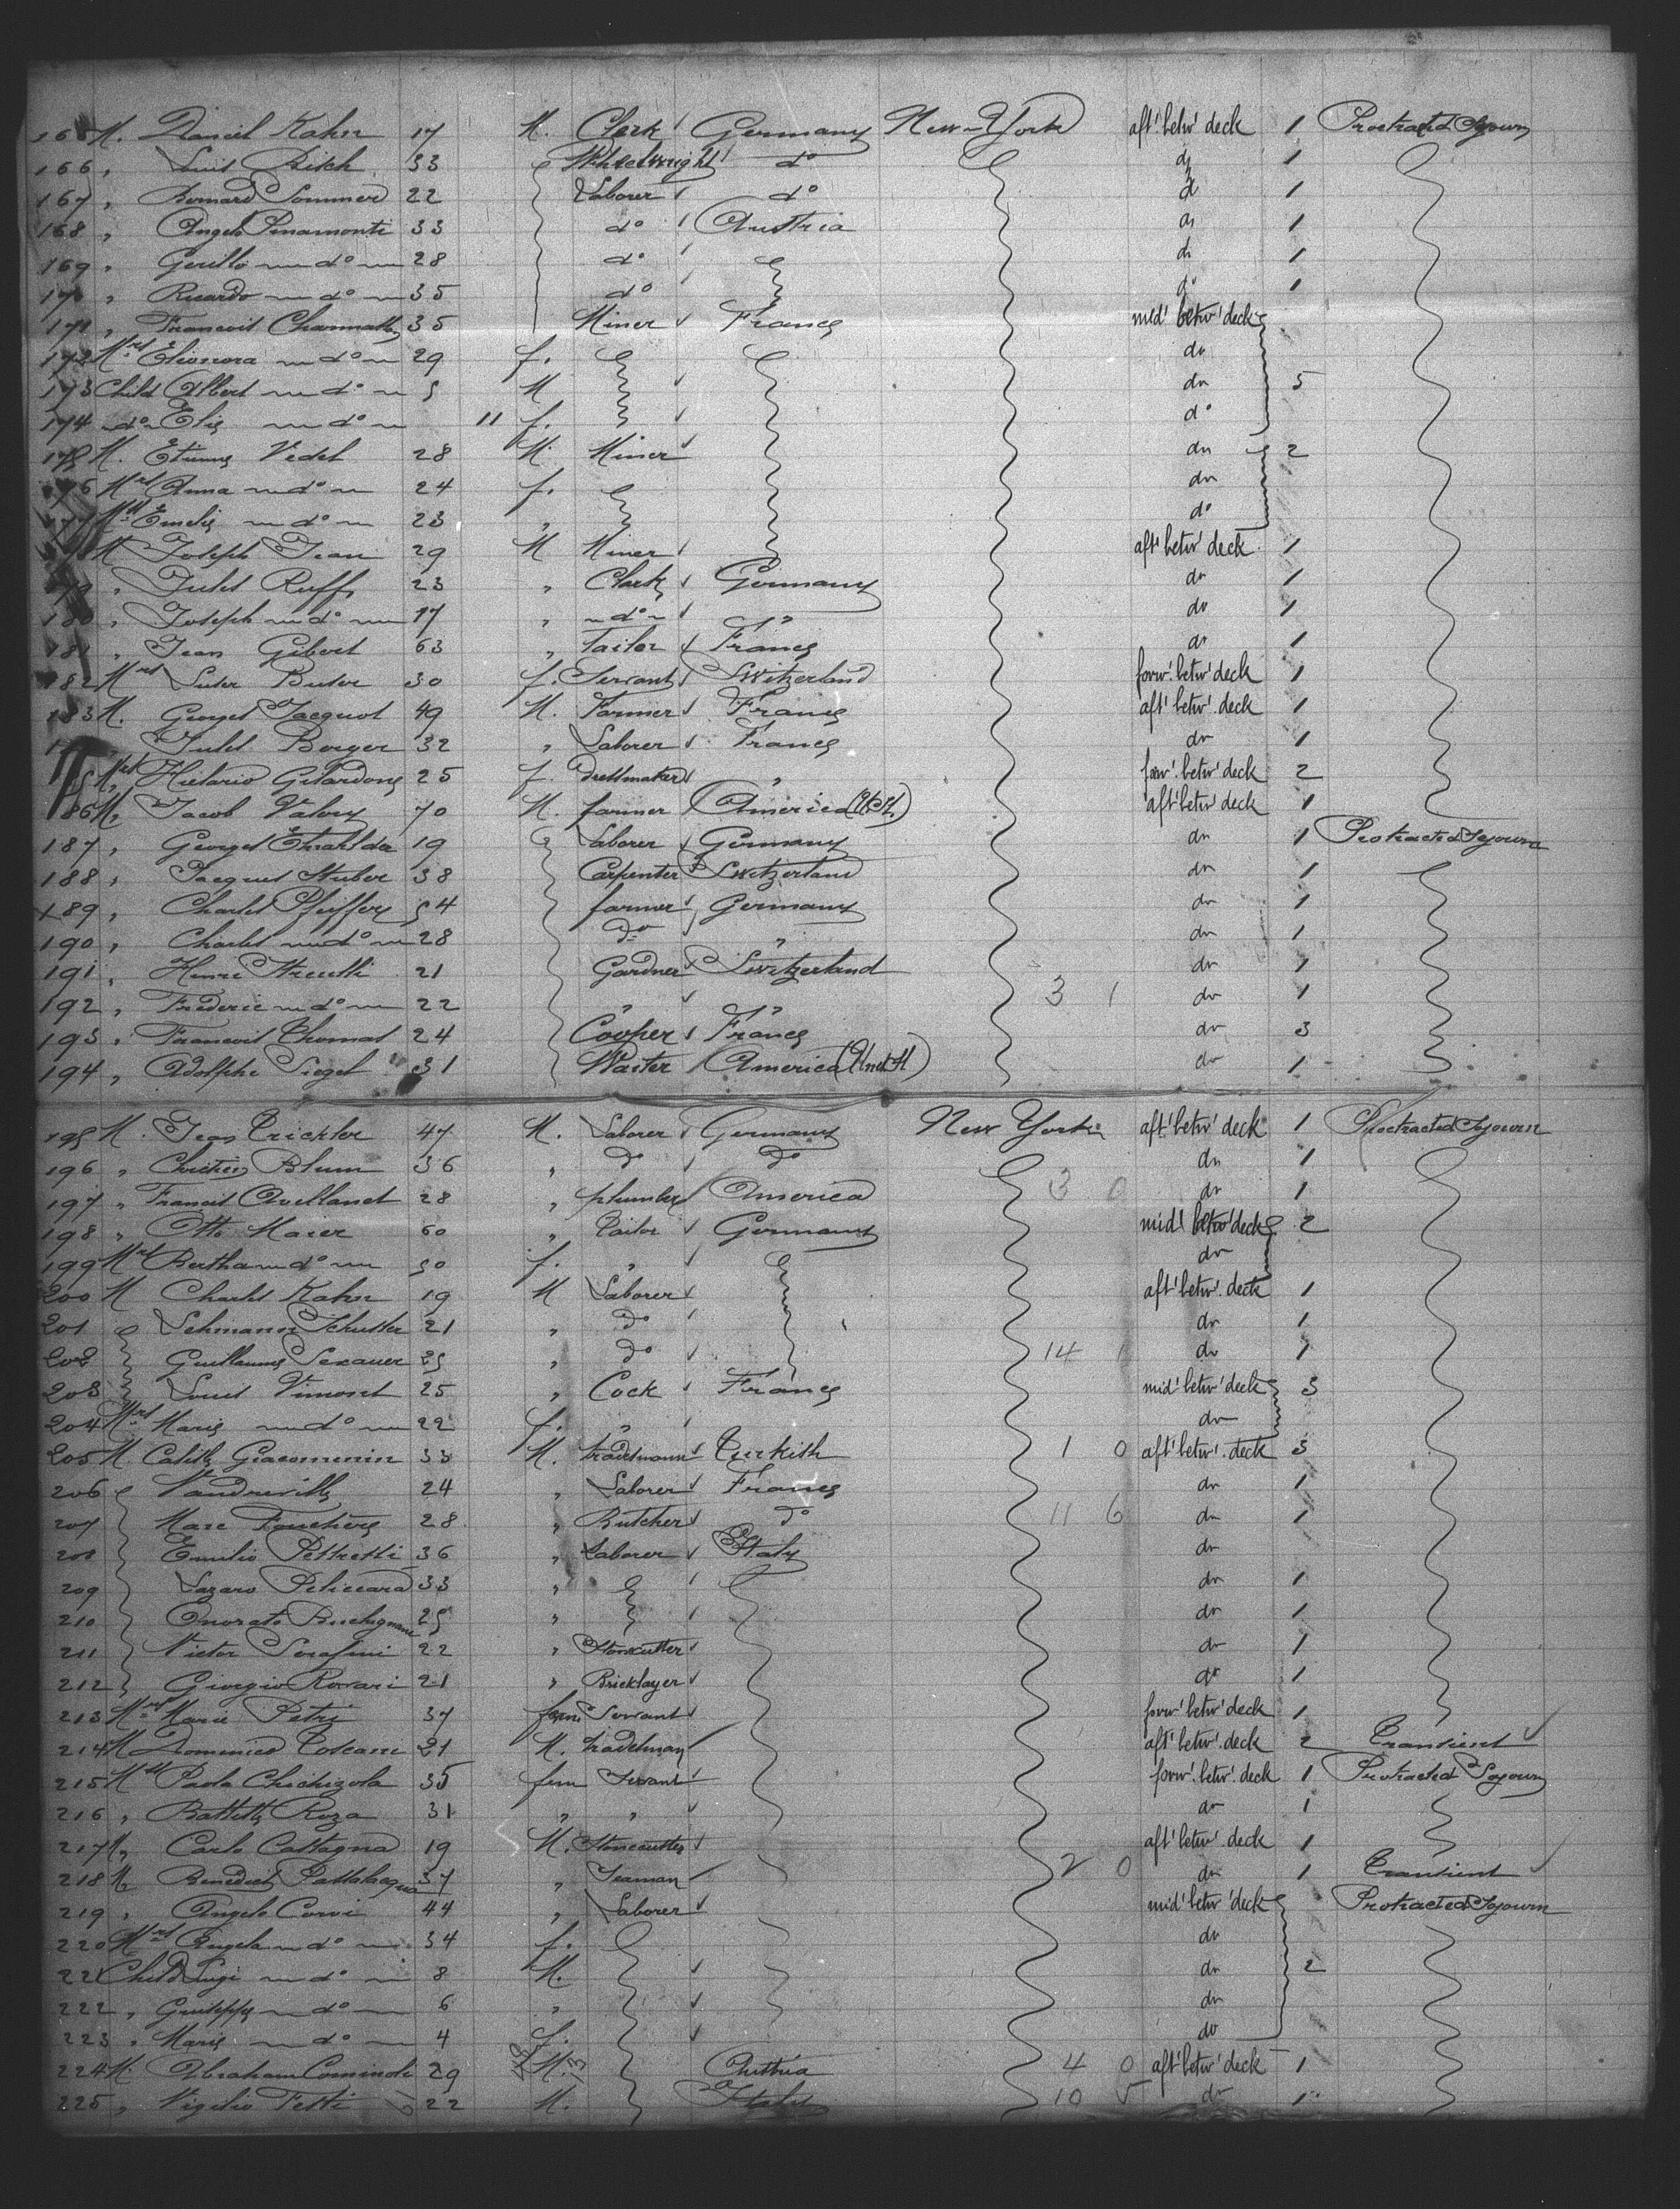 165 M. Daniel Kahn 17 M. Clerk Germany New-York aft' betw' deck 1 Protracted Sojourn
166 " Louis Bisch 33 Wheelwright do do 1
167 " Bernard Sommer 22 Laborer do do 1
168 " Angelo Pinamonti 33 do Austria do 1
169 " do 28 do do 1
170 " Ricardo do 35 do do 1
171 " Francois 35 Miner France mid' betw' deck
172 Mrs Eleonora do 29 f. do
173 Child Albert do 5 M do 5
174 do Elise do 11 f. do
175 M. Etienne Vedel 28 M. Miner do 2
176 Mrs Anna do 24 f. do
177 Mlle Emelie do 23 " do
M Joseph Jean 29 M Miner aft' betw' deck 1
179 " Jules Ruff 23 " Clerk Germany do 1
180 " Joseph do 17 " do " do 1
181 " Jean Gibert 63 " Tailor France do 1
182 Mrs Suter 30 f. Servant Switzerland forw' betw' deck 1
183 M. Georges Jacquot 49 M. Farmer France aft' betw' deck 1
" Jules Berger 32 " Laborer France do 1
Hielario Gilardone 25 f. Dressmaker " forw' betw' deck 2
186 M. Jacob Valory 70 M. farmer America aft' betw' deck 1
187 " Georges 19 Laborer Germany do 1 Protracted Sojourn
188 " Jacques Stuber 38 Carpenter Switzerland do 1
189 " Charles Pfeiffer 54 farmer Germany do 1
190 " Charles do 28 do " do 1
191 " Henri 21 Gardner Switzerland do 1
192 " Frederic do 22 " " 3 1 do 1
193 " Francois Thomas 24 Cooper France do 3
194 " Adolphe Siegel 31 Waiter America do 1
195 M. Jean Trickler 47 M. Laborer Germany New York aft' betw' deck 1 Protracted Sojourn
196 " Blum 36 " do do do 1
197 " Francis Avellanet 28 " plumber America 3 0 do 1
198 " Otto Marer 60 " Tailor Germany mid' betw' deck 2
199 Mrs Bertha do 50 f. " do
200 M Charles Kahn 19 M Laborer aft' betw' deck 1
201 Lehmann Schuster 21 " do do 1
202 Guillaume Sexauer 25 " do 14 1 do 1
203 Louis Vimont 25 " Cook France mid' betw' deck 3
204 Mrs Marie do 22 f. " do
205 M. Giacommin 33 M. tradesmann Turkish 1 0 aft' betw' deck 3
206 24 " Laborer France do 1
207 Marc 28 " Butcher do 11 6 do 1
208 Emilio Pettretti 36 " Laborer Italy do
209 Lazaro 33 " do 1
210 Onorato 25 " do 1
211 Victor Serafini 22 " Stonecutter do 1
212 Giorgio 21 " Bricklayer do 1
213 Marie Petri 37 fem Servant forw' betw' deck 1
214 M Domenico Toscani 21 M. tradesman aft' betw' deck 2 Transient
215 Paola Chichizola 35 fem Servant forw' betw' deck 1 Protracted Sojourn
216 " Roza 31 " " do 1
217 M, Carlo Castagna 19 M. Stonecutter aft' betw' deck 1
218 M Benedict 37 " Seaman 2 0 do 1 Transient
219 " Angelo Corvi 44 " Laborer mid' betw' deck Protracted Sojourn
220 Mrs Angela do 34 f. do
221 Child Luigi do 8 M. do 2
222 " Guiseppe do 6 " do
223 " Marie do 4 f. do
224 M. Abraham Cominoli 29 M. Austria 4 0 aft' betw' deck 1
225 " Vigilio Tetti 22 M. Italy 10 5 do 1